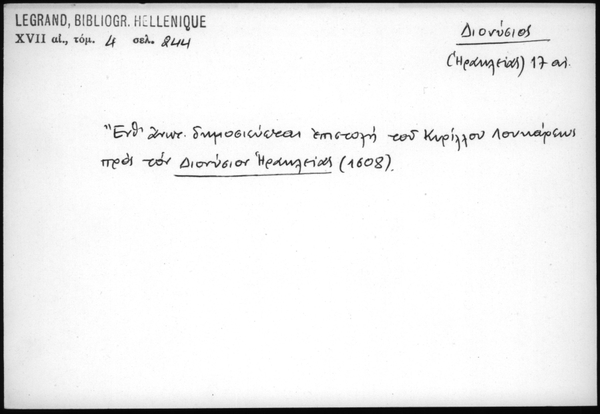 LEGRAND, BIBLIOGR. HELLENIQUE
XVII αἰ., τόμ. 4 σελ. 244
Διονύσιος
(Ἡρακλείας) 17 αι.
Ἔνθ' ἀνωτ. δημοσιεύεται ἐπιστολή τοῦ Κυρίλλου Λουκάρεως
πρός τόν Διονύσιον Ἡρακλείας (1608).